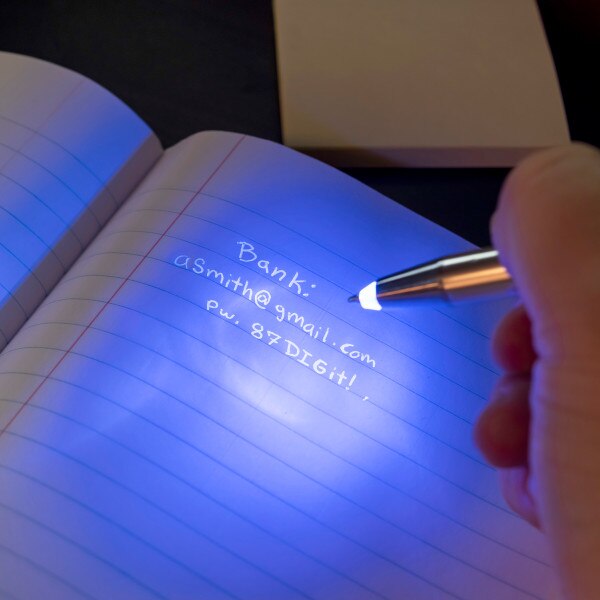 Bank:
asmith@gmail.com
Pw. 87DIGit!,